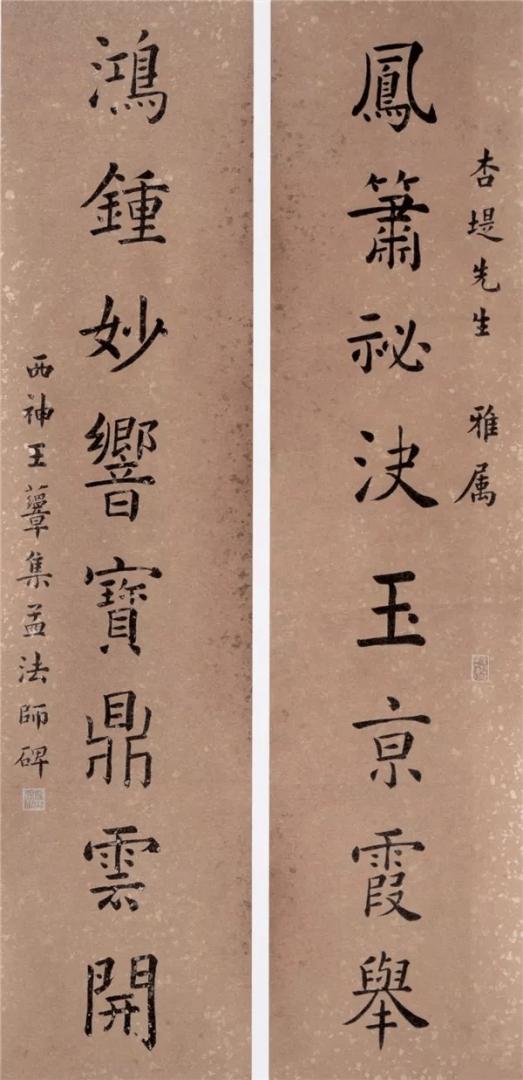 杏堤先生 雅属
鳳簫祕決玉亰霞舉
鴻鍾妙響寶鼎雲開
西神王集孟法師碑